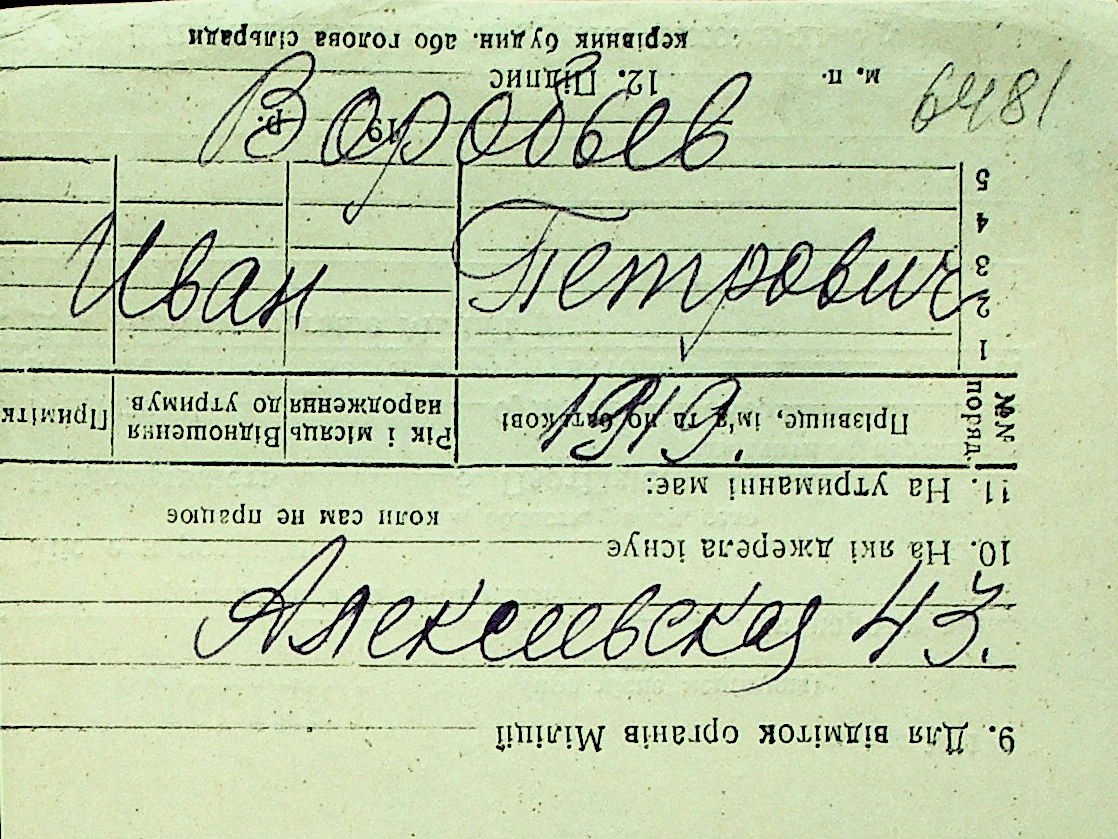 керівник будин. або голова сільради
м. п.
12. Підпис
6481
Воробьев
19 р.
5
4
Иван Петрович
3
2
1
№№ поряд.
Прізвище, ім'я та по батькові
Рік і місяць народження
Відношення до утримув.
Примітк
1919.
11. На утриманні має:
коли сам не працює
10. На які джерела існує
Алексеевская 43.
9. Для відміток органів Міліції